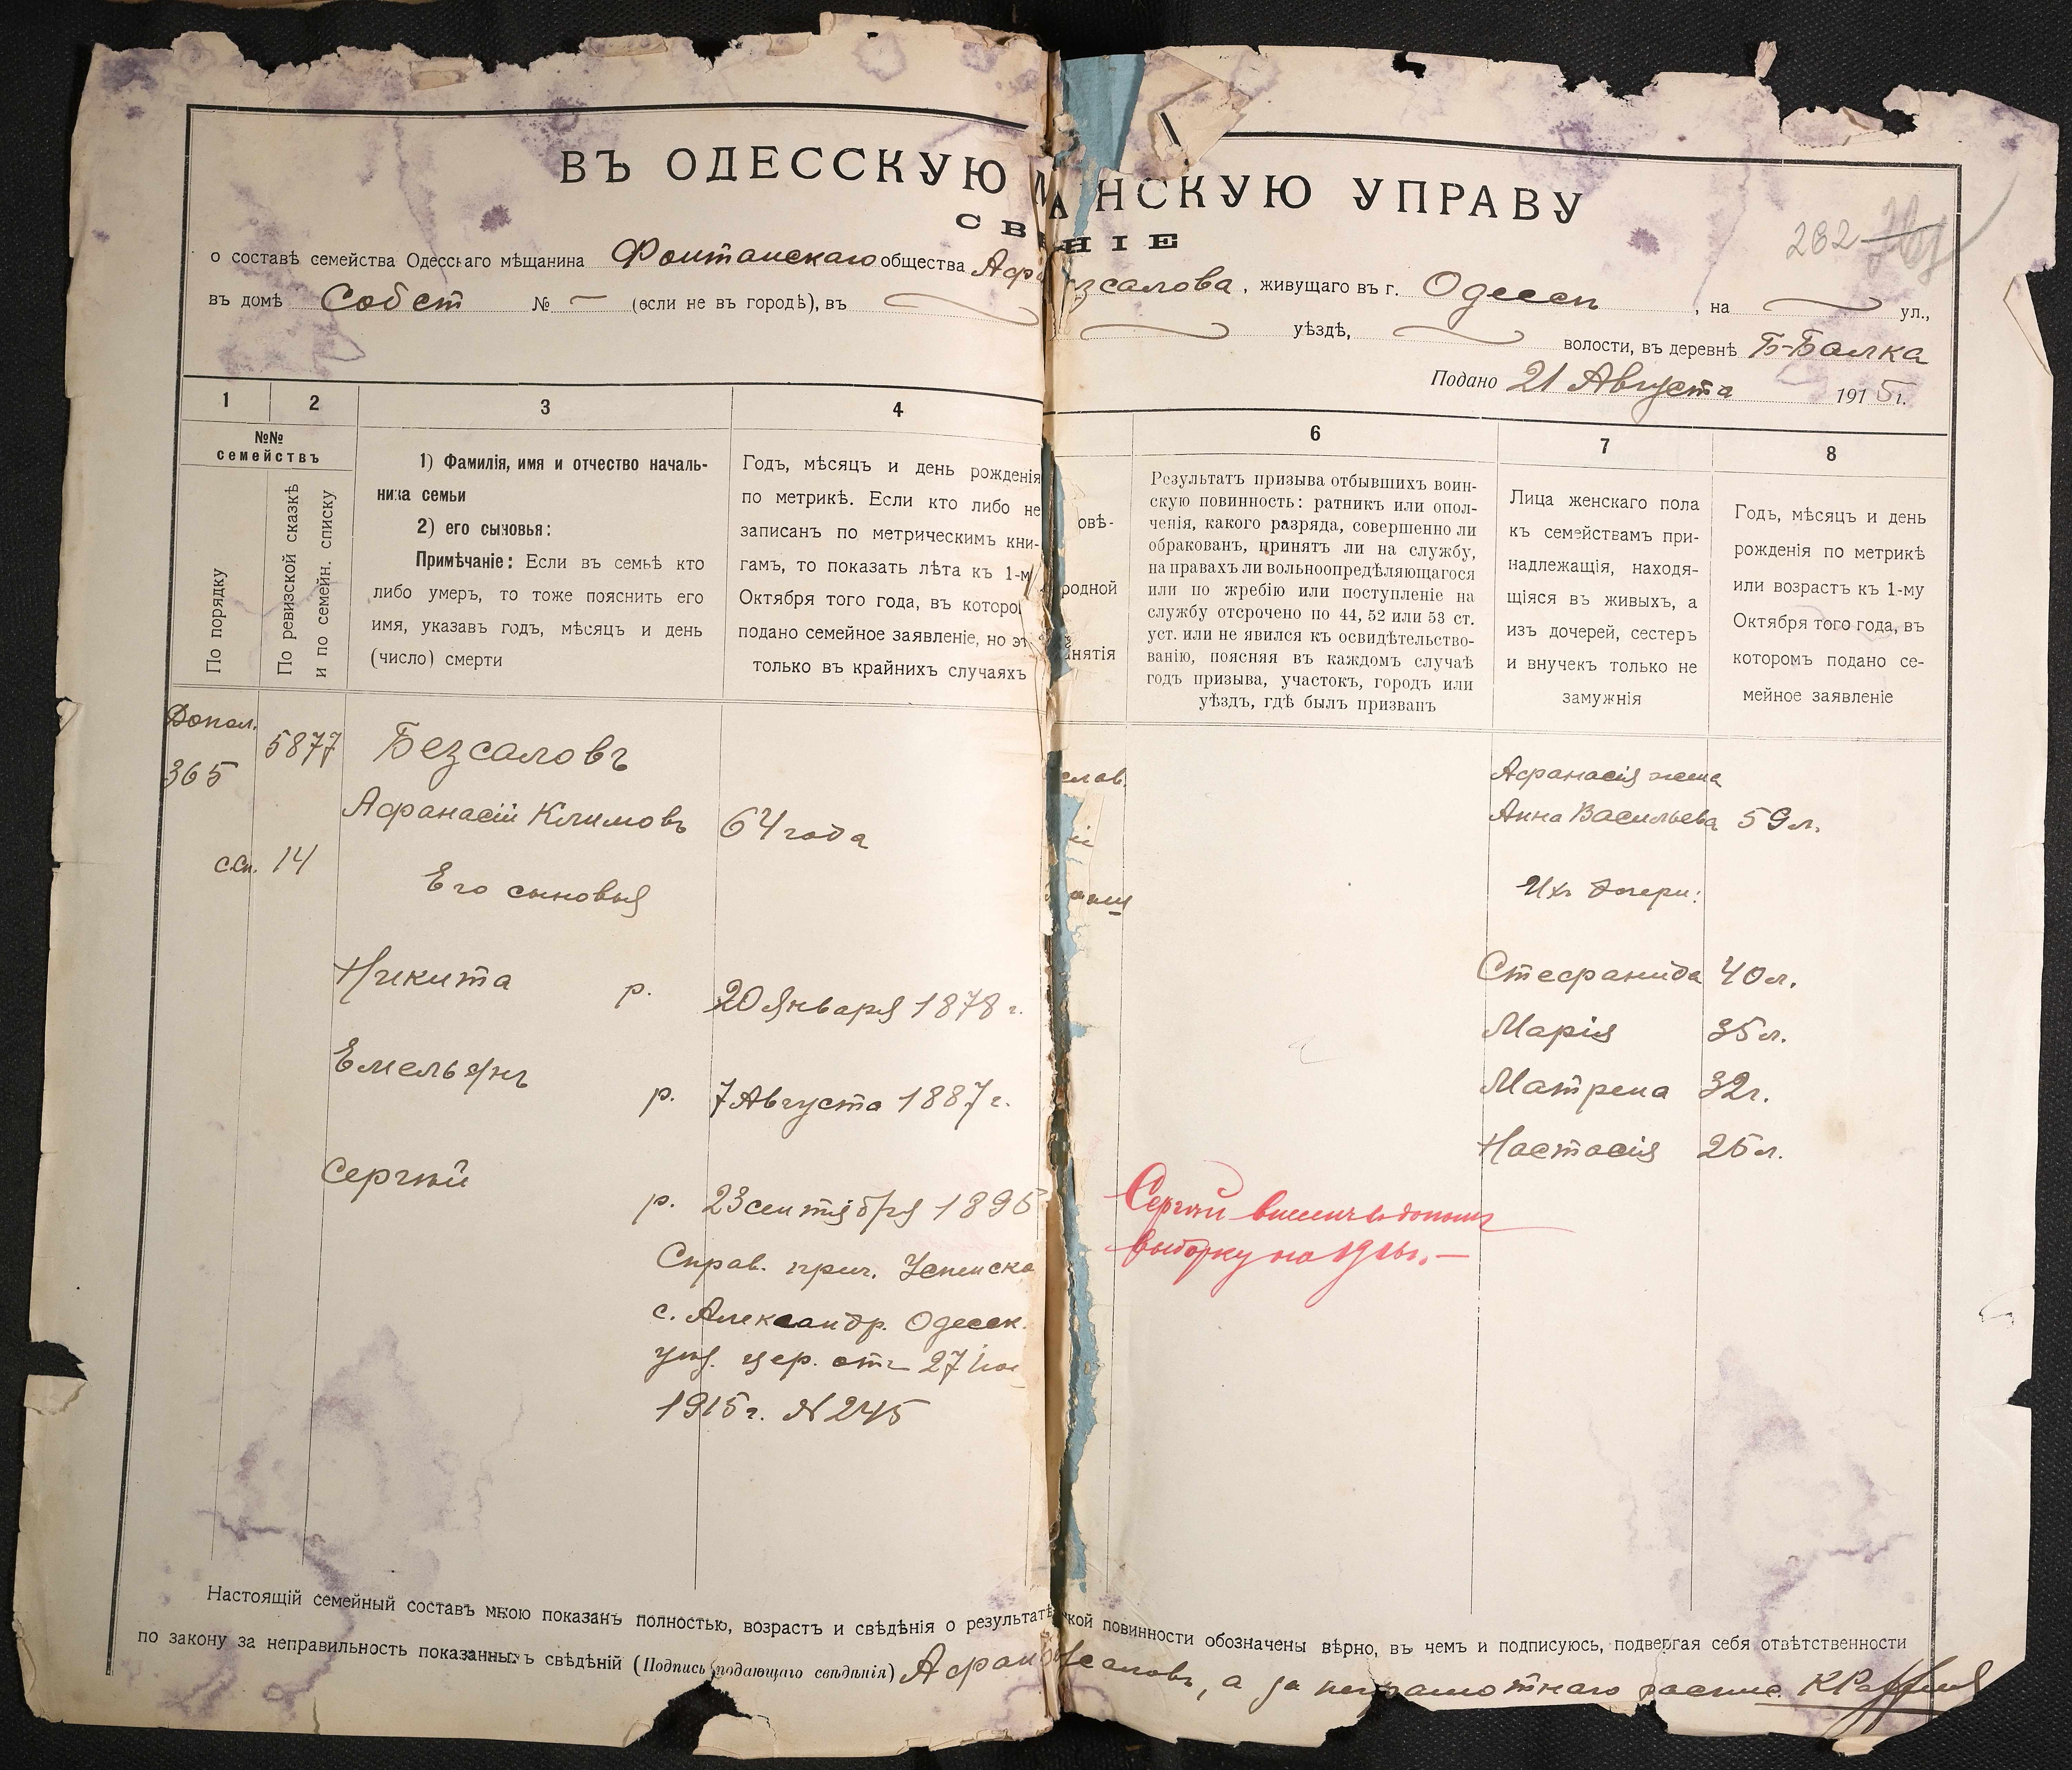 ВЪ ОДЕССКУЮ М НСКУЮ УПРАВУ
СВ НІЕ
262
о составѣ семейства Одесскаго мѣщанина Фонтанскаго общества Аф зсалова, живущаго въ г. Одессѣ, на ул.,
въ домѣ Собст № — (если не въ городѣ), въ уѣздѣ, волости, въ деревнѣ Б-Балка
Подано 21 Августа 1915 г.
1 2 3 4 6 7 8
№№
семействъ
По порядку
По ревизской сказкѣ
и по семейн. списку
1) Фамилія, имя и отчество началь-
ника семьи
2) его сыновья:
Примѣчаніе: Если въ семьѣ кто
либо умеръ, то тоже пояснить его
имя, указавъ годъ, мѣсяцъ и день
(число) смерти
Годъ, мѣсяцъ и день рожденія
по метрикѣ. Если кто либо не
записанъ по метрическимъ кни-
гамъ, то показать лѣта къ 1-м
Октября того года, въ которо
подано семейное заявленіе, но эт
только въ крайнихъ случаяхъ
овѣ-
родной
нятія
Результатъ призыва отбывшихъ воин-
скую повинность: ратникъ или опол-
ченія, какого разряда, совершенно ли
обракованъ, принятъ ли на службу,
на правахъ ли вольноопредѣляющагося
или по жребію или поступленіе на
службу отсрочено по 44, 52 или 53 ст.
уст. или не явился къ освидѣтельство-
ванію, поясняя въ каждомъ случаѣ
годъ призыва, участокъ, городъ или
уѣздъ, гдѣ былъ призванъ
Лица женскаго пола
къ семействамъ при-
надлежащія, находя-
щіяся въ живыхъ, а
изъ дочерей, сестеръ
и внучекъ только не
замужнія
Годъ, мѣсяцъ и день
рожденія по метрикѣ
или возрастъ къ 1-му
Октября того года, въ
которомъ подано се-
мейное заявленіе
Допол. 5877 Безсаловъ
365
Афанасій Климовъ 64 года
сп. 14
Его сыновья
Никита р. 20 Января 1878 г.
Емельянъ р. 7 Августа 1887 г.
Сергѣй р. 23 сентября 1895
Справ. прич. Успенско
с. Александр. Одесск.
уѣз. цер. отъ 27
1915 г. N 245
слав.
Афанасія жена
Анна Васильева 59 л.
Ихъ дочери:
Стефанида 40 л.
Марія 35 л.
Матрена 32 г.
Настасія 25 л.
Сергѣй внесенъ въ допол
выборку на 1916 г. —
Настоящій семейный составъ мною показанъ полностью, возрастъ и свѣдѣнія о результатѣ ской повинности обозначены вѣрно, въ чемъ и подписуюсь, подвергая себя отвѣтственности
по закону за неправильность показанныхъ свѣдѣній (Подпись подающаго свѣдѣнія) Афан саловъ, а за неграмотнаго распис.